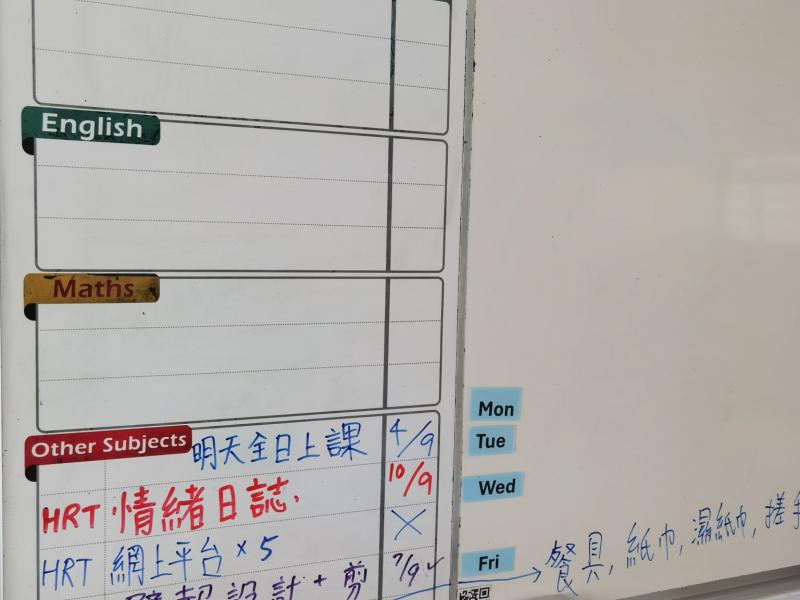 English
Maths
Other Subjects 明天全日上課 4/9
HRT 情緒日誌. 10/9
HRT 網上平台 × 5 ×
設計 + 剪 7/9 ✓
Mon
Tue
Wed
Fri → 餐具, 紙巾, 濕紙巾, 搓手